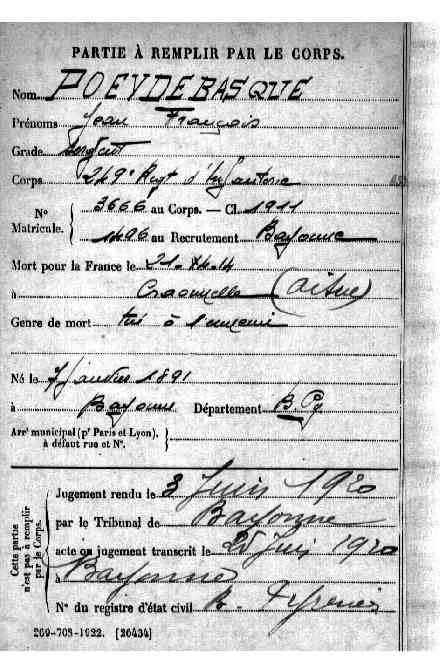 PARTIE À REMPLIR PAR LE CORPS.
Nom POEYDEBASQUE
Prénoms Jean François
Grade Sergent
Corps 249e Regt d'Infanterie
N° Matricule. { 3666 au Corps. — Cl. 1911
1496 au Recrutement Bayonne
Mort pour la France le 21-
à Craonnelle (Aisne)
Genre de mort tué à l'ennemi
Né le 7 Janvier 1891
à Bayonne Département B. Py
Arrt municipal (pr Paris et Lyon), à défaut rue et N°. }
Cette partie n'est pas à remplir par le Corps.
Jugement rendu le 3 Juin 1920
par le Tribunal de Bayonne
acte ou jugement transcrit le 25 Juin 1920
Bayonne
N° du registre d'état civil B.
269-708-1922. [26434]